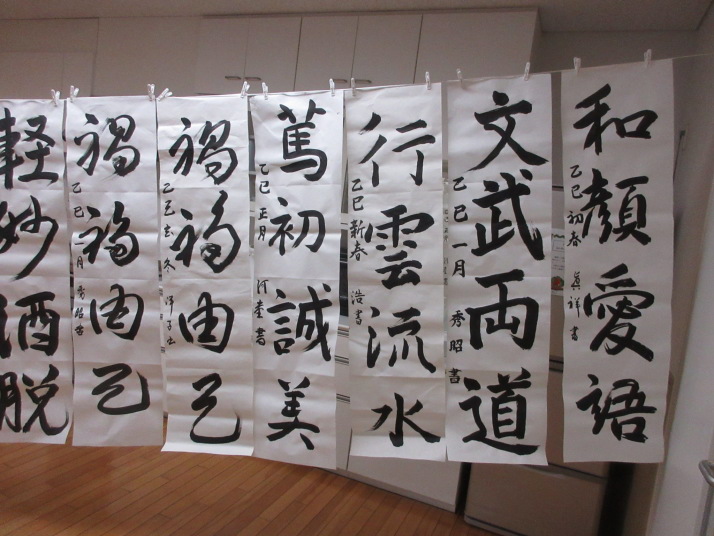 和顔愛語
乙巳初春
祥書
文武両道
乙巳一月
秀昭書
行雲流水
乙巳新春
浩書
篤初誠美
乙巳正月
書
禍福由己
乙巳
冬
禍福由己
乙巳一月
軽妙洒脱